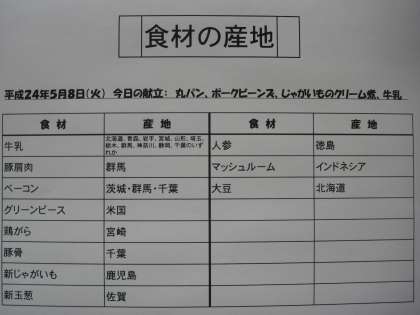 食材の産地
平成24年5月8日(火) 今日の献立: 丸パン、ポークビーンズ、じゃがいものクリーム煮、牛乳
食材 産地 食材 産地
牛乳 北海道、青森、岩手、宮城、山形、埼玉、栃木、群馬、神奈川、静岡、千葉のいずれか 人参 徳島
豚肩肉 群馬 マッシュルーム インドネシア
ベーコン 茨城・群馬・千葉 大豆 北海道
グリーンピース 米国
鶏がら 宮崎
豚骨 千葉
新じゃがいも 鹿児島
新玉葱 佐賀